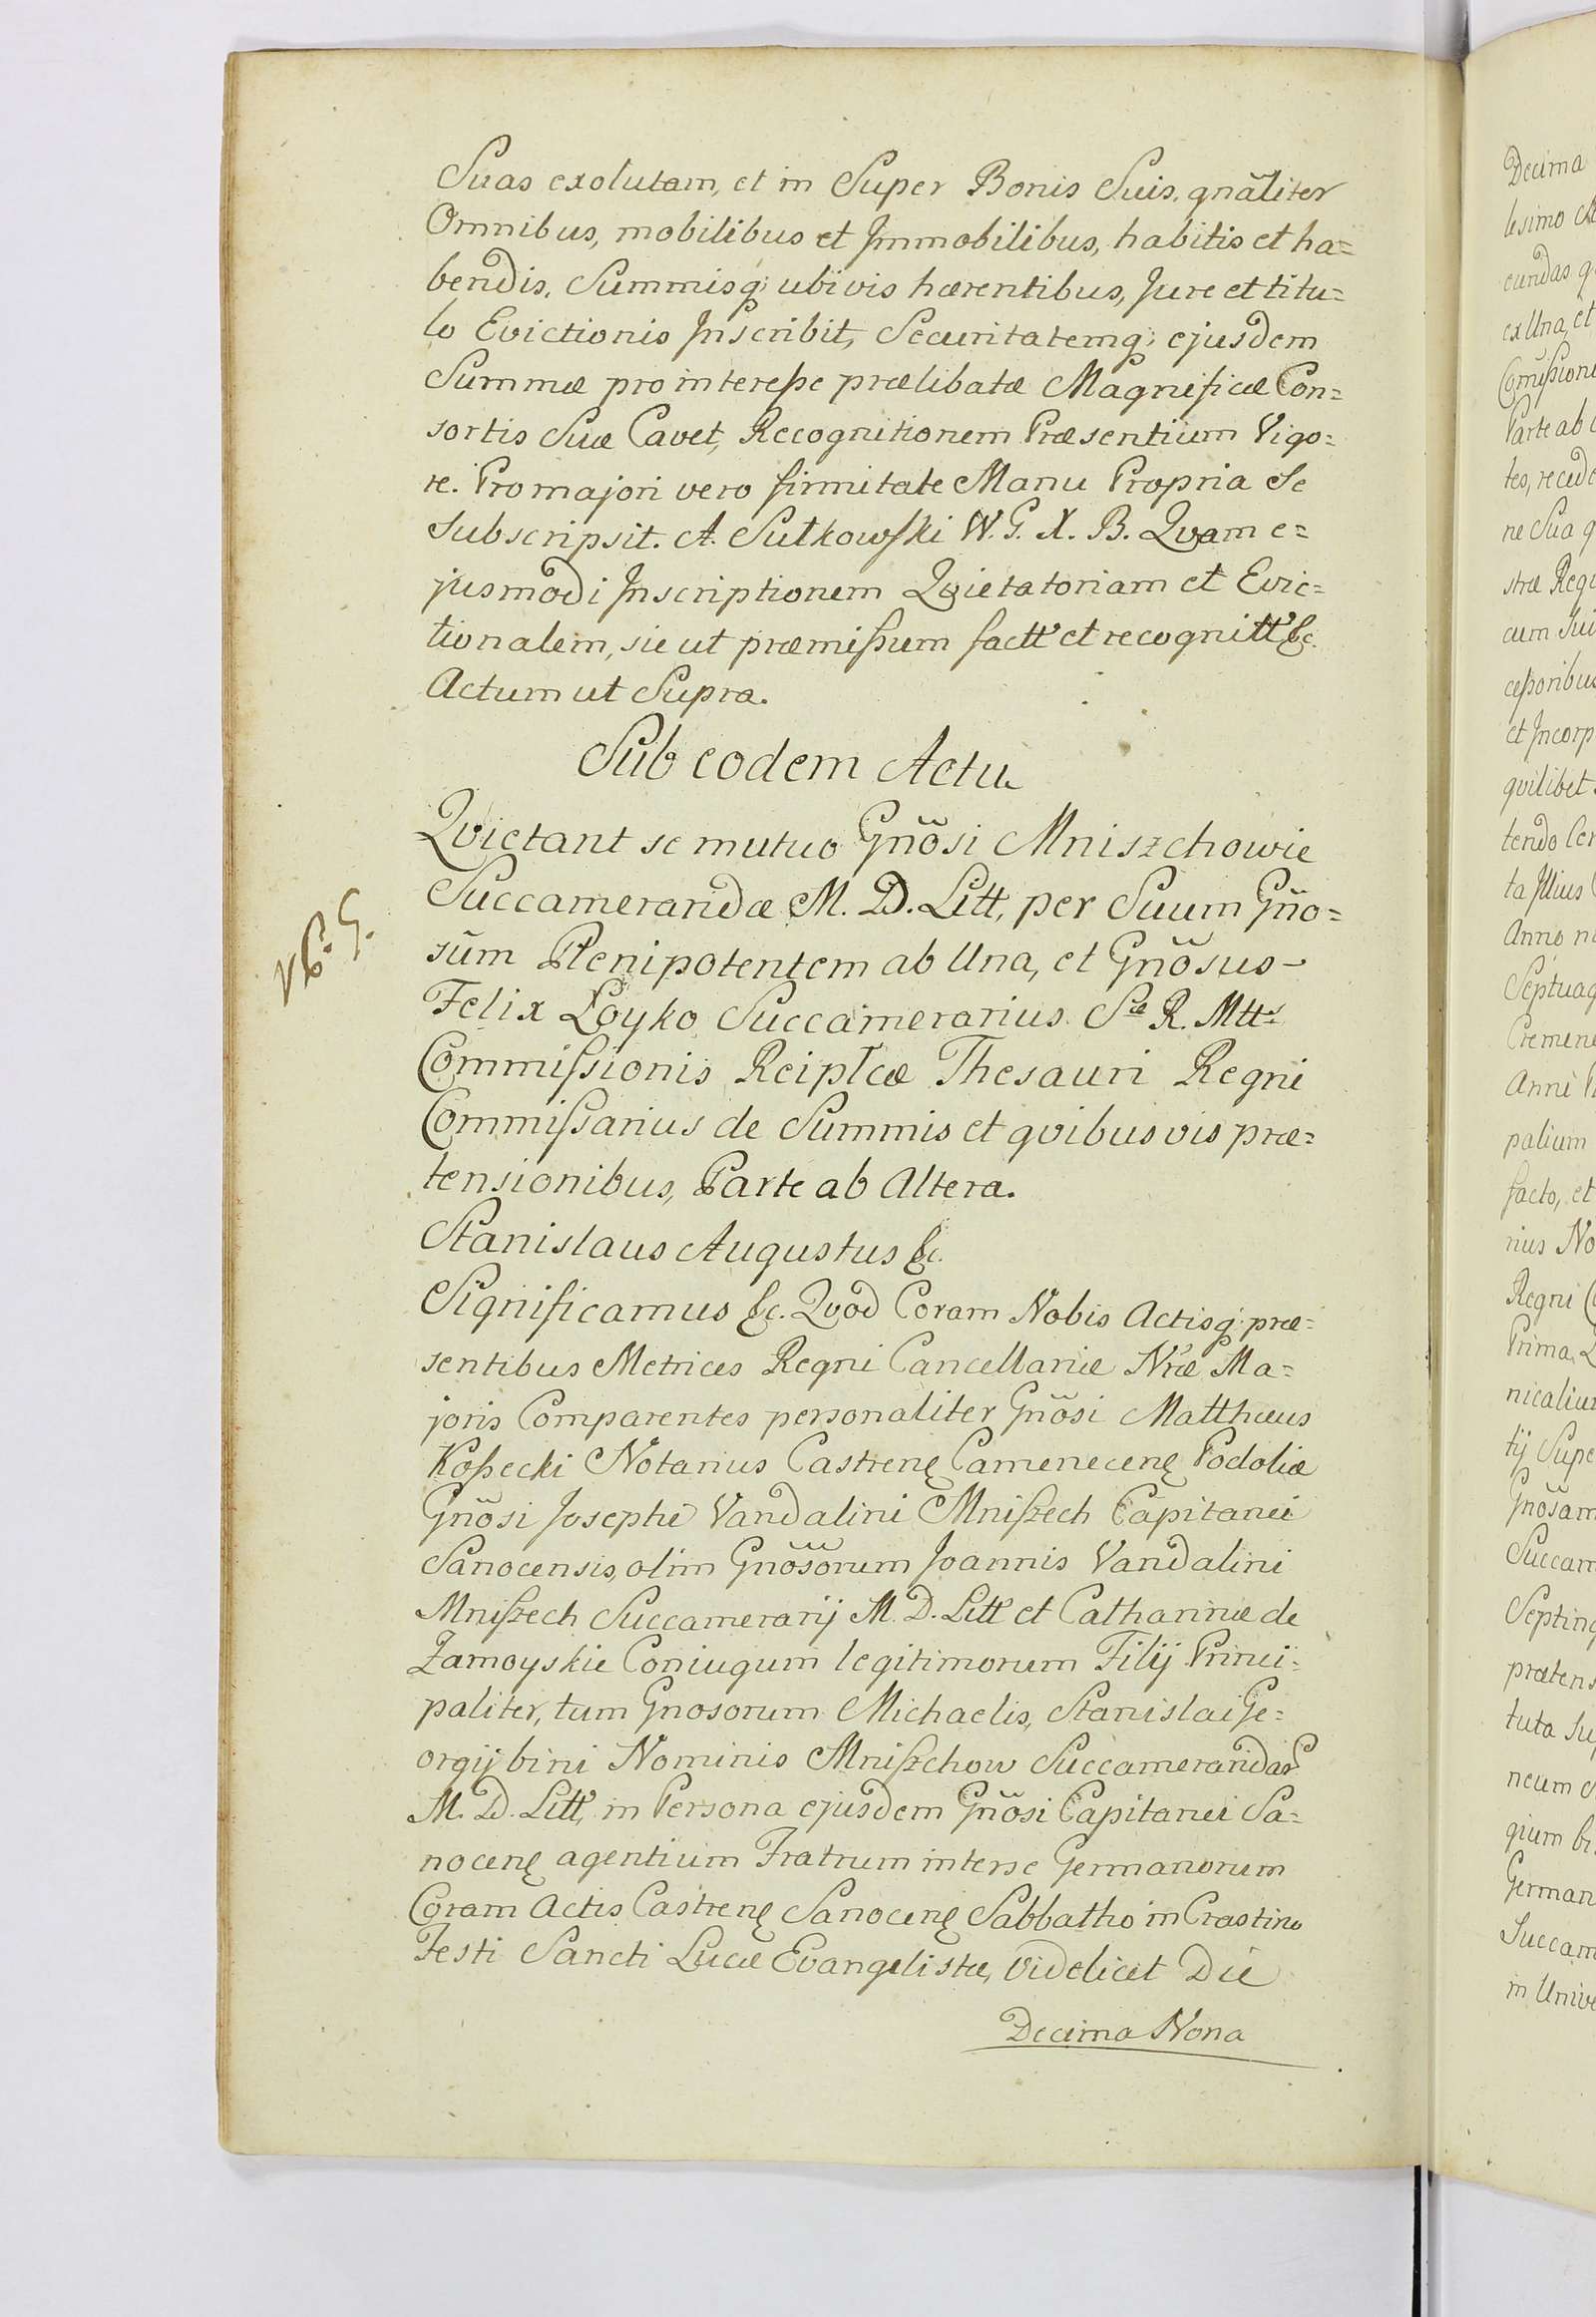 Suas exolutam, et in Super Bonis Suis, gnãliter
Omnibus, mobilibus et Jmmobilibus, habitis et ha=
bendis, Summisq; ubivis hærentibus, Jure et titu=
lo Evictionis Jnscribit, Securitatemq; ejusdem
Summæ pro interesse prælibatæ Magnificæ Con=
sortis Suæ Cavet, Recognitionem Præsentium Vigo=
re. Pro majori vero firmitate Manu Propria Se
subscripsit. A. Sułkowski W. G. X. B. Qvam e=
jusmodi Jnscriptionem Qvietatoriam et Evic=
tionalem, sic ut præmissum factt et recognitt &c.
Actum ut Supra.
Sub eodem Actu
Qvietant se mutuo Gnõsi Mniszchowie
Succamerandæ M. D. Litt, per Suum Gño=
sũm Plenipotentem ab Una, et Gnõsus
Felix Łoyko Succamerarius Sæ R. Mtts
Commissionis Reiplcæ Thesauri Regni
Commissarius de Summis et qvibusvis præ=
tensionibus, Parte ab Altera.
Stanislaus Augustus &c.
Significamus &c. Qvod Coram Nobis Actisq; præ=
sentibus Metrices Regni Cancellariæ Nræ Ma=
joris Comparentes personaliter Gnõsi Matthæus
Kossecki Notarius Castrenę Camenecenę Podoliæ
Gnõsi Josephi Vandalini Mniszech Capitanei
Sanocensis, olim Gnõsõrum Joannis Vandalini
Mniszech Succamerarij M. D. Litt et Catharinæ de
Zamoyskie Coniugum legitimorum Filij Princi=
paliter, tum Gnosorum Michaelis, Stanislai Ge=
orgij bini Nominis Mniszchow Succameranda
M. D. Litt, in Persona ejusdem Gnõsi Capitanei Sa=
nocenę agentium Fratrum interse Germanorum
Coram Actis Castrenę Sanocenę Sabbatho in Crastino
Festi Sancti Lucæ Evangelistæ, Videlicet Die
Decima Nona
Decima
cundas
ex Una, et
Parte ab
ne Sua
cum
et Jncorp
qvilibet
Anno
Septuag
Anni
palium
facto, et
Regni
Prima,
tij Supe
Gnõsam
Succam
Septing
German
Succam
in Unive